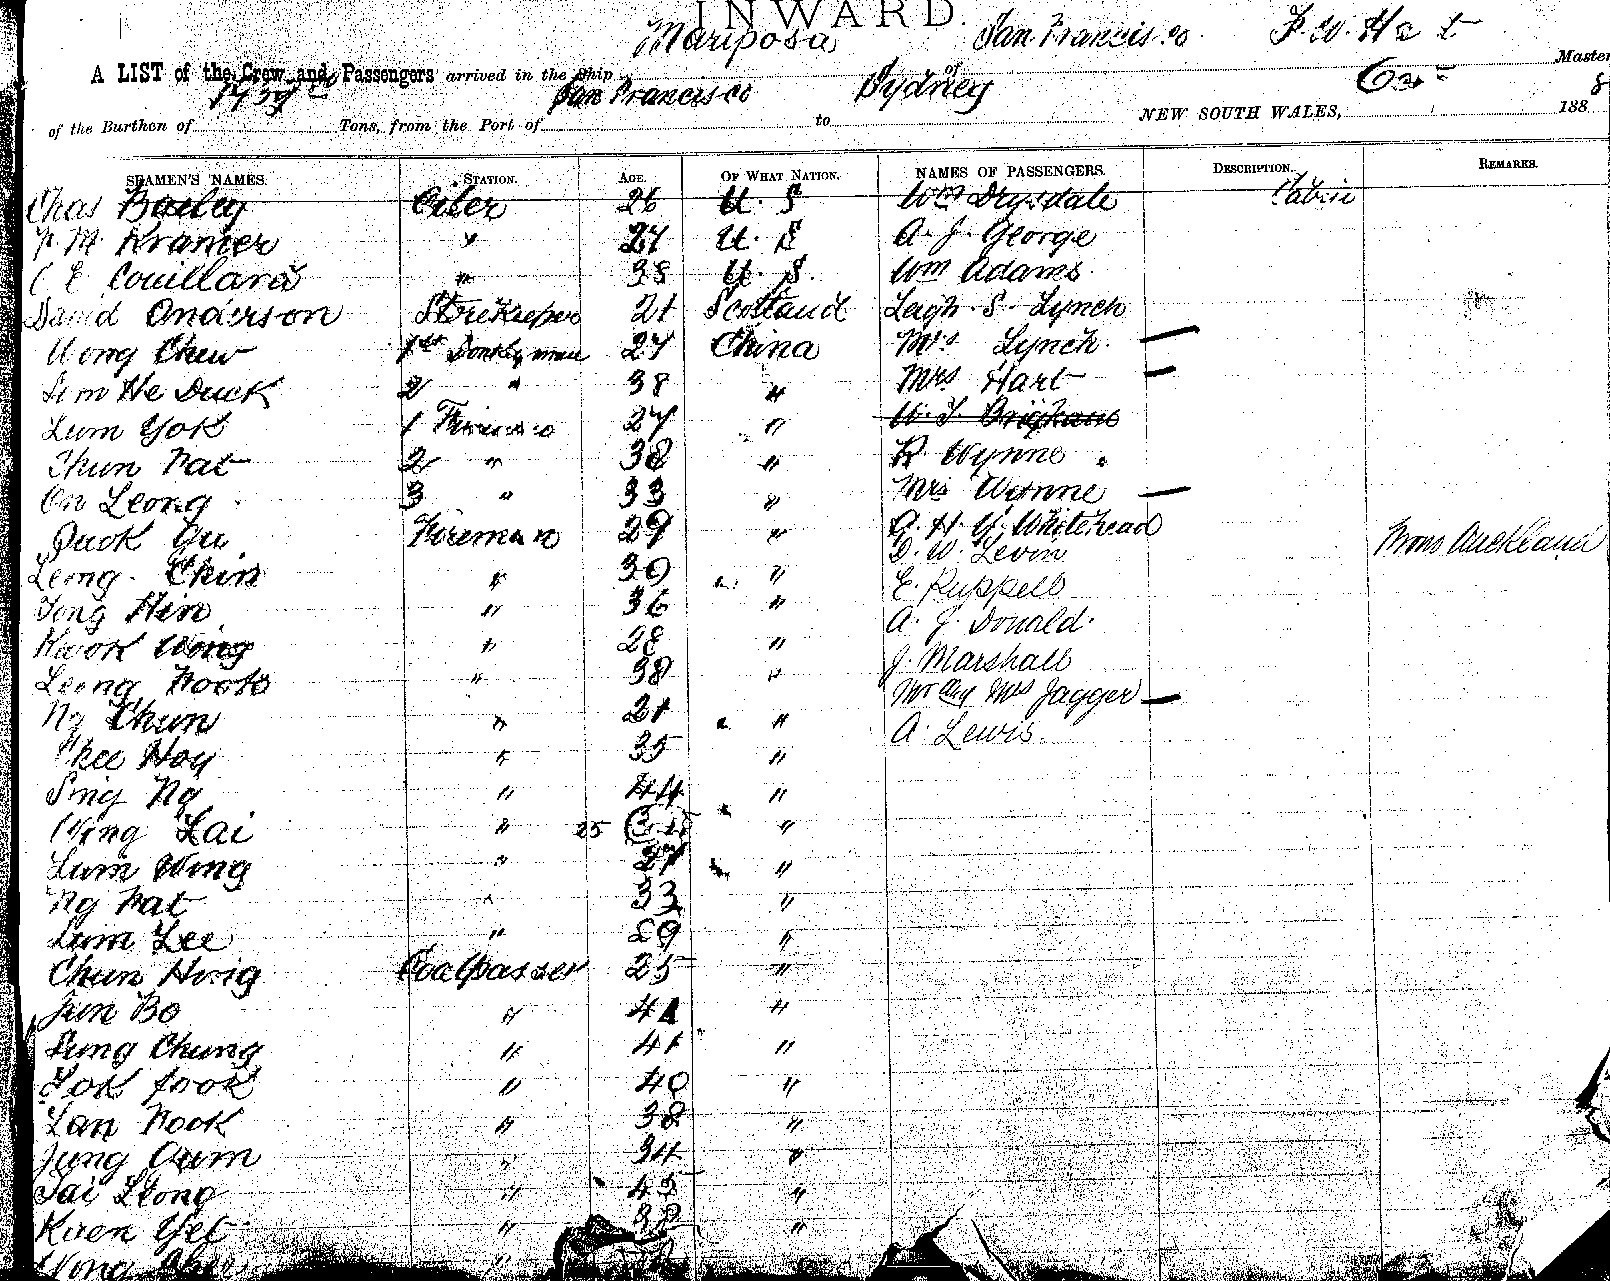 INWARD.
Mariposa San Francisco F. W. Hart
A LIST of the Crew and Passengers arrived in the Ship of Master
San Francisco Sydney
of the Burthen of Tons, from the Port of to NEW SOUTH WALES, 188 8
SEAMEN'S NAMES. STATION. AGE. OF WHAT NATION. NAMES OF PASSENGERS. DESCRIPTION. REMARKS.
Chas Bailey Oiler 26 U. S Wm Drysdale Cabin
Kramer " 24 U. S A. J. George
C E Couillard " 38 U. S. Wm Adams
David Anderson Storekeeper 21 Scotland Leigh S. Lynch
Wong Chew 1st Donkeyman 27 China Mrs Lynch —
He Duck 2 " 38 " Mrs Hart —
Lum Yok 1 27 " W. T. Brigham
Chun Fat 2 " 38 " R. Wynne "
On Leong 3 " 33 " Mrs Wynne —
Duck Fireman 29 " A. H. Y. Whitehead
D. W. Levin From Auckland
Leong Chin " 30 " E. Ruppell
Tong Hin " 36 " A. J. Donald
Kwok Wong " 28 " J. Marshall
Leong Fook " 38 " Mr and Mrs Jagger —
Ng Chun " 21 " A. Lewis
Chee Hoy " 35 "
Sing Ng " 44 "
Wing Lai " 25 35 "
Lum Wing " 27 "
Ng Fat " 33 "
Lum Lee " 29 "
Chun Hing Coalpasser 25 "
Jun Bo " 41 "
Lung Chung " 41 "
Fook " 40 "
Lan Fook " 38 "
Jung " 34 "
Tai Leong " 45 "
Kwen Yet " 32 "
Wong "